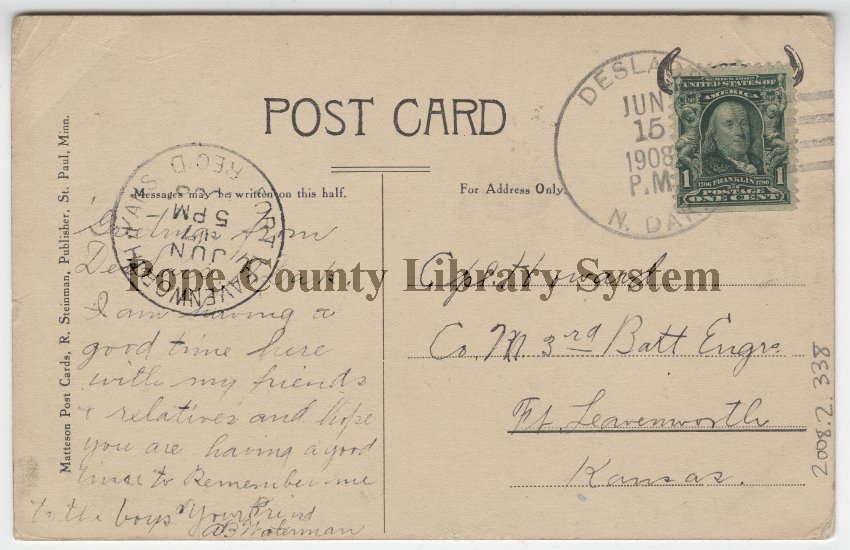 POST CARD
Messages may be written on this half.
For Address Only.
Matteson Post Cards, R. Steinman, Publisher, St. Paul, Minn.
DESLA
JUN
15
1908
P.M.
N. DAK
SERIES 1902
UNITED STATES OF
AMERICA
1 FRANKLIN 1
1706 1790
POSTAGE
ONE CENT
FORT LEAVENWORTH KANS
REC'D
JUN
17
5 PM
'08
Greetings from
I am having a
good time here
with my friends
& relatives and hope
you are having a good
time to Remember me
to the boys Your Friend
Waterman
Howard
Co. M. 3rd Batt Engrs.
Ft. Leavenworth
Kansas.
Pope County Library System
2008.2.338